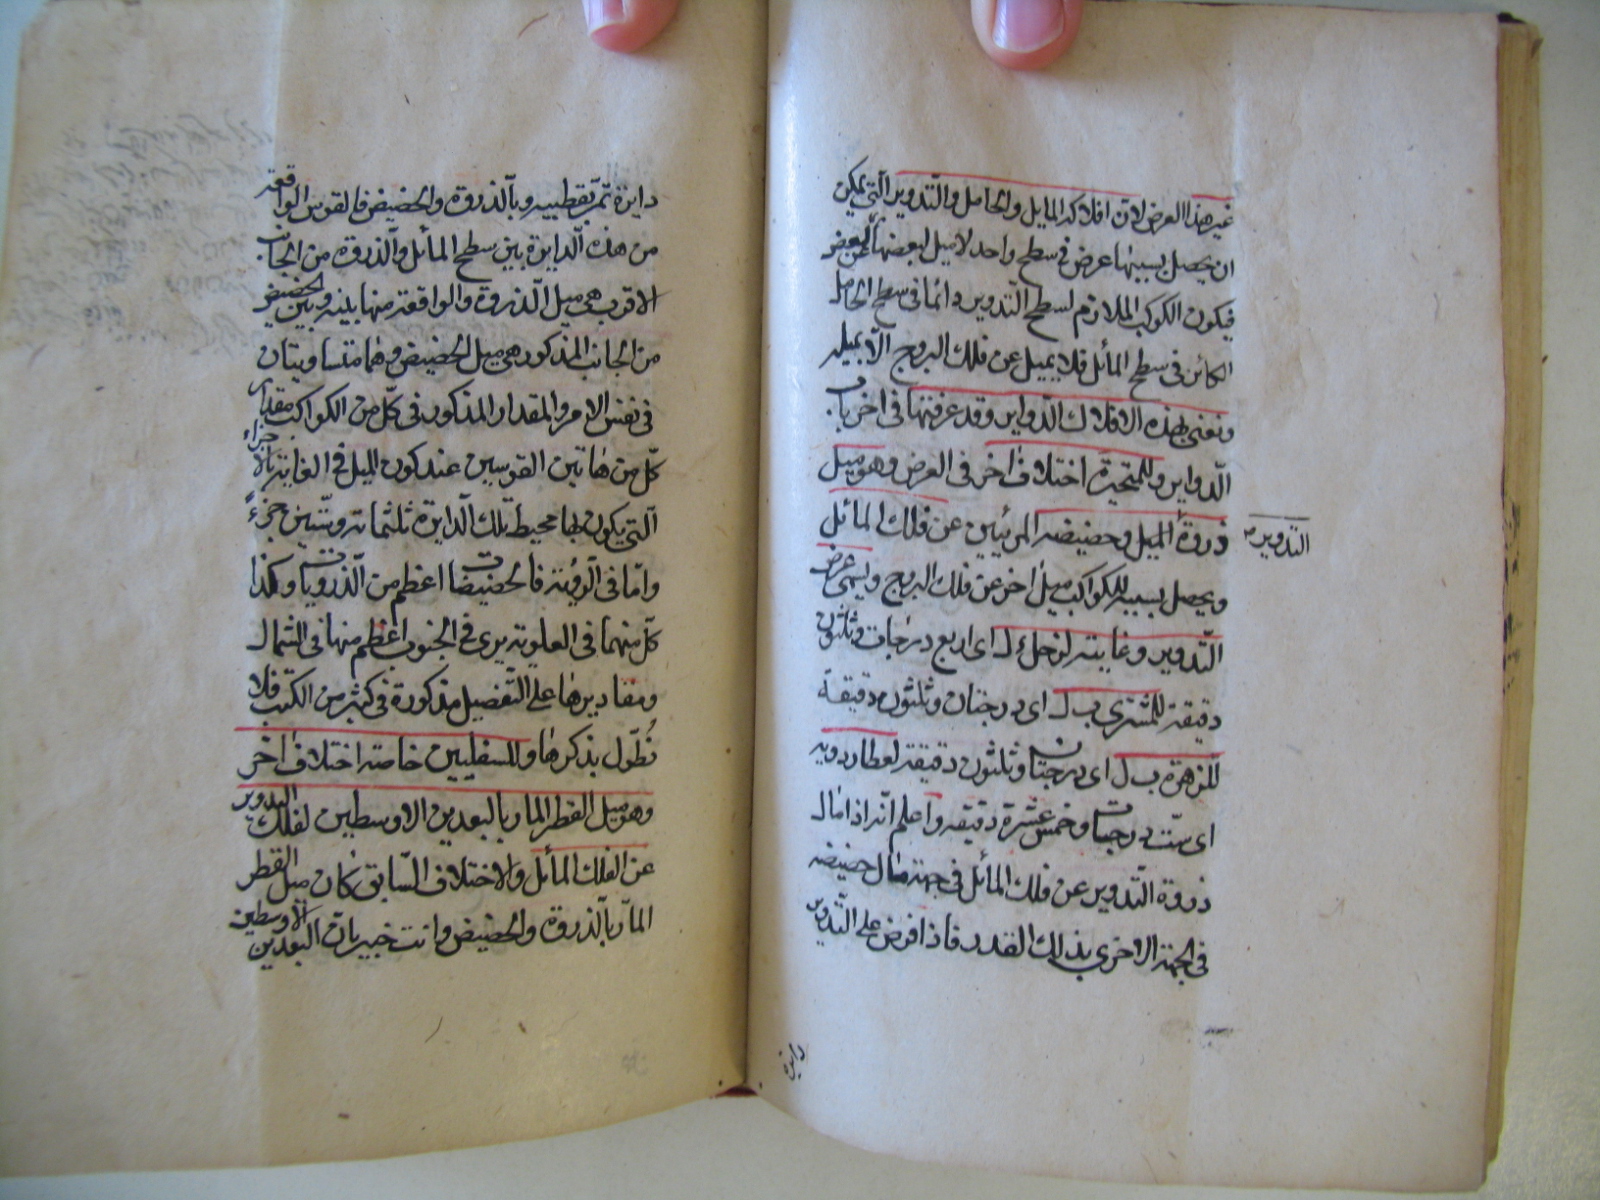 غير هذا العرض لان افلاكه المايل والحامل والتدوير التى يمكن
ان يحصل بسببها عرض فى سطح واحد لا ميل لبعضها عن بعض
فيكون الكوكب الملازم لسطح التدوير دائما فى سطح الحامل
الكائن فى سطح المائل فلا يميل عن فلك البروج الا بميله
ونعنى بهذه الافلاك الدواير وقد عرفتها فى اخر باب
الدواير وللمتحيرة اختلاف اخر فى العرض وهو ميل
ذروة الميل وحضيضه المرئيين عن فلك المائل
التدوير
ويحصل بسببه للكواكب ميل اخر عن فلك البروج ويسمى عرض
التدوير وغايته لزحل د ل اى اربع درجات وثلثون
دقيقة للمشترى ب ل اى درجتان وثلثون دقيقة
للزهرة ب ل اى درجتان وثلثون دقيقة لعطارد و يه
اى ست درجات وخمس عشرة دقيقه واعلم انه اذا مال
ذروة التدوير عن فلك المائل فى جهة مال حضيضه
فى الجهة الاخرى بذلك القدر فاذا فرض على التدوير
دايرة
دايرة تمر بقطبيه وبالذروة والحضيض فالقوس الواقعة
من هذه الدايرة بين سطح المائل والذروة من الجانب
الاقرب هى ميل الذروة والواقعة منها بينه وبين الحضيض
من الجانب المذكور هى ميل الحضيض وهما متساويتان
فى نفس الامر والمقدار المذكور فى كل من الكواكب مقدار
كل من هاتين القوسين عند كون الميل فى الغاية بالاجزاء
التى يكون بها محيط تلك الدايرة ثلثمائة وستين جزءً
واما فى الرؤية فالحضيضات اعظم من الذرويات وكذا
كل منهما فى العلوية يرى فى الجنوب اعظم منها فى الشمال
ومقاديرها على التفصيل مذكورة فى كثير من الكتب فلا
نُطَوّل بذكرها وللسفليين خاصة اختلاف اخر
وهو ميل القطر المار بالبعدين الاوسطين لفلك التدوير
عن الفلك المائل والاختلاف السابق كان ميل القطر
المار بالذروة والحضيض وانت خبير بان البعدين الاوسطين